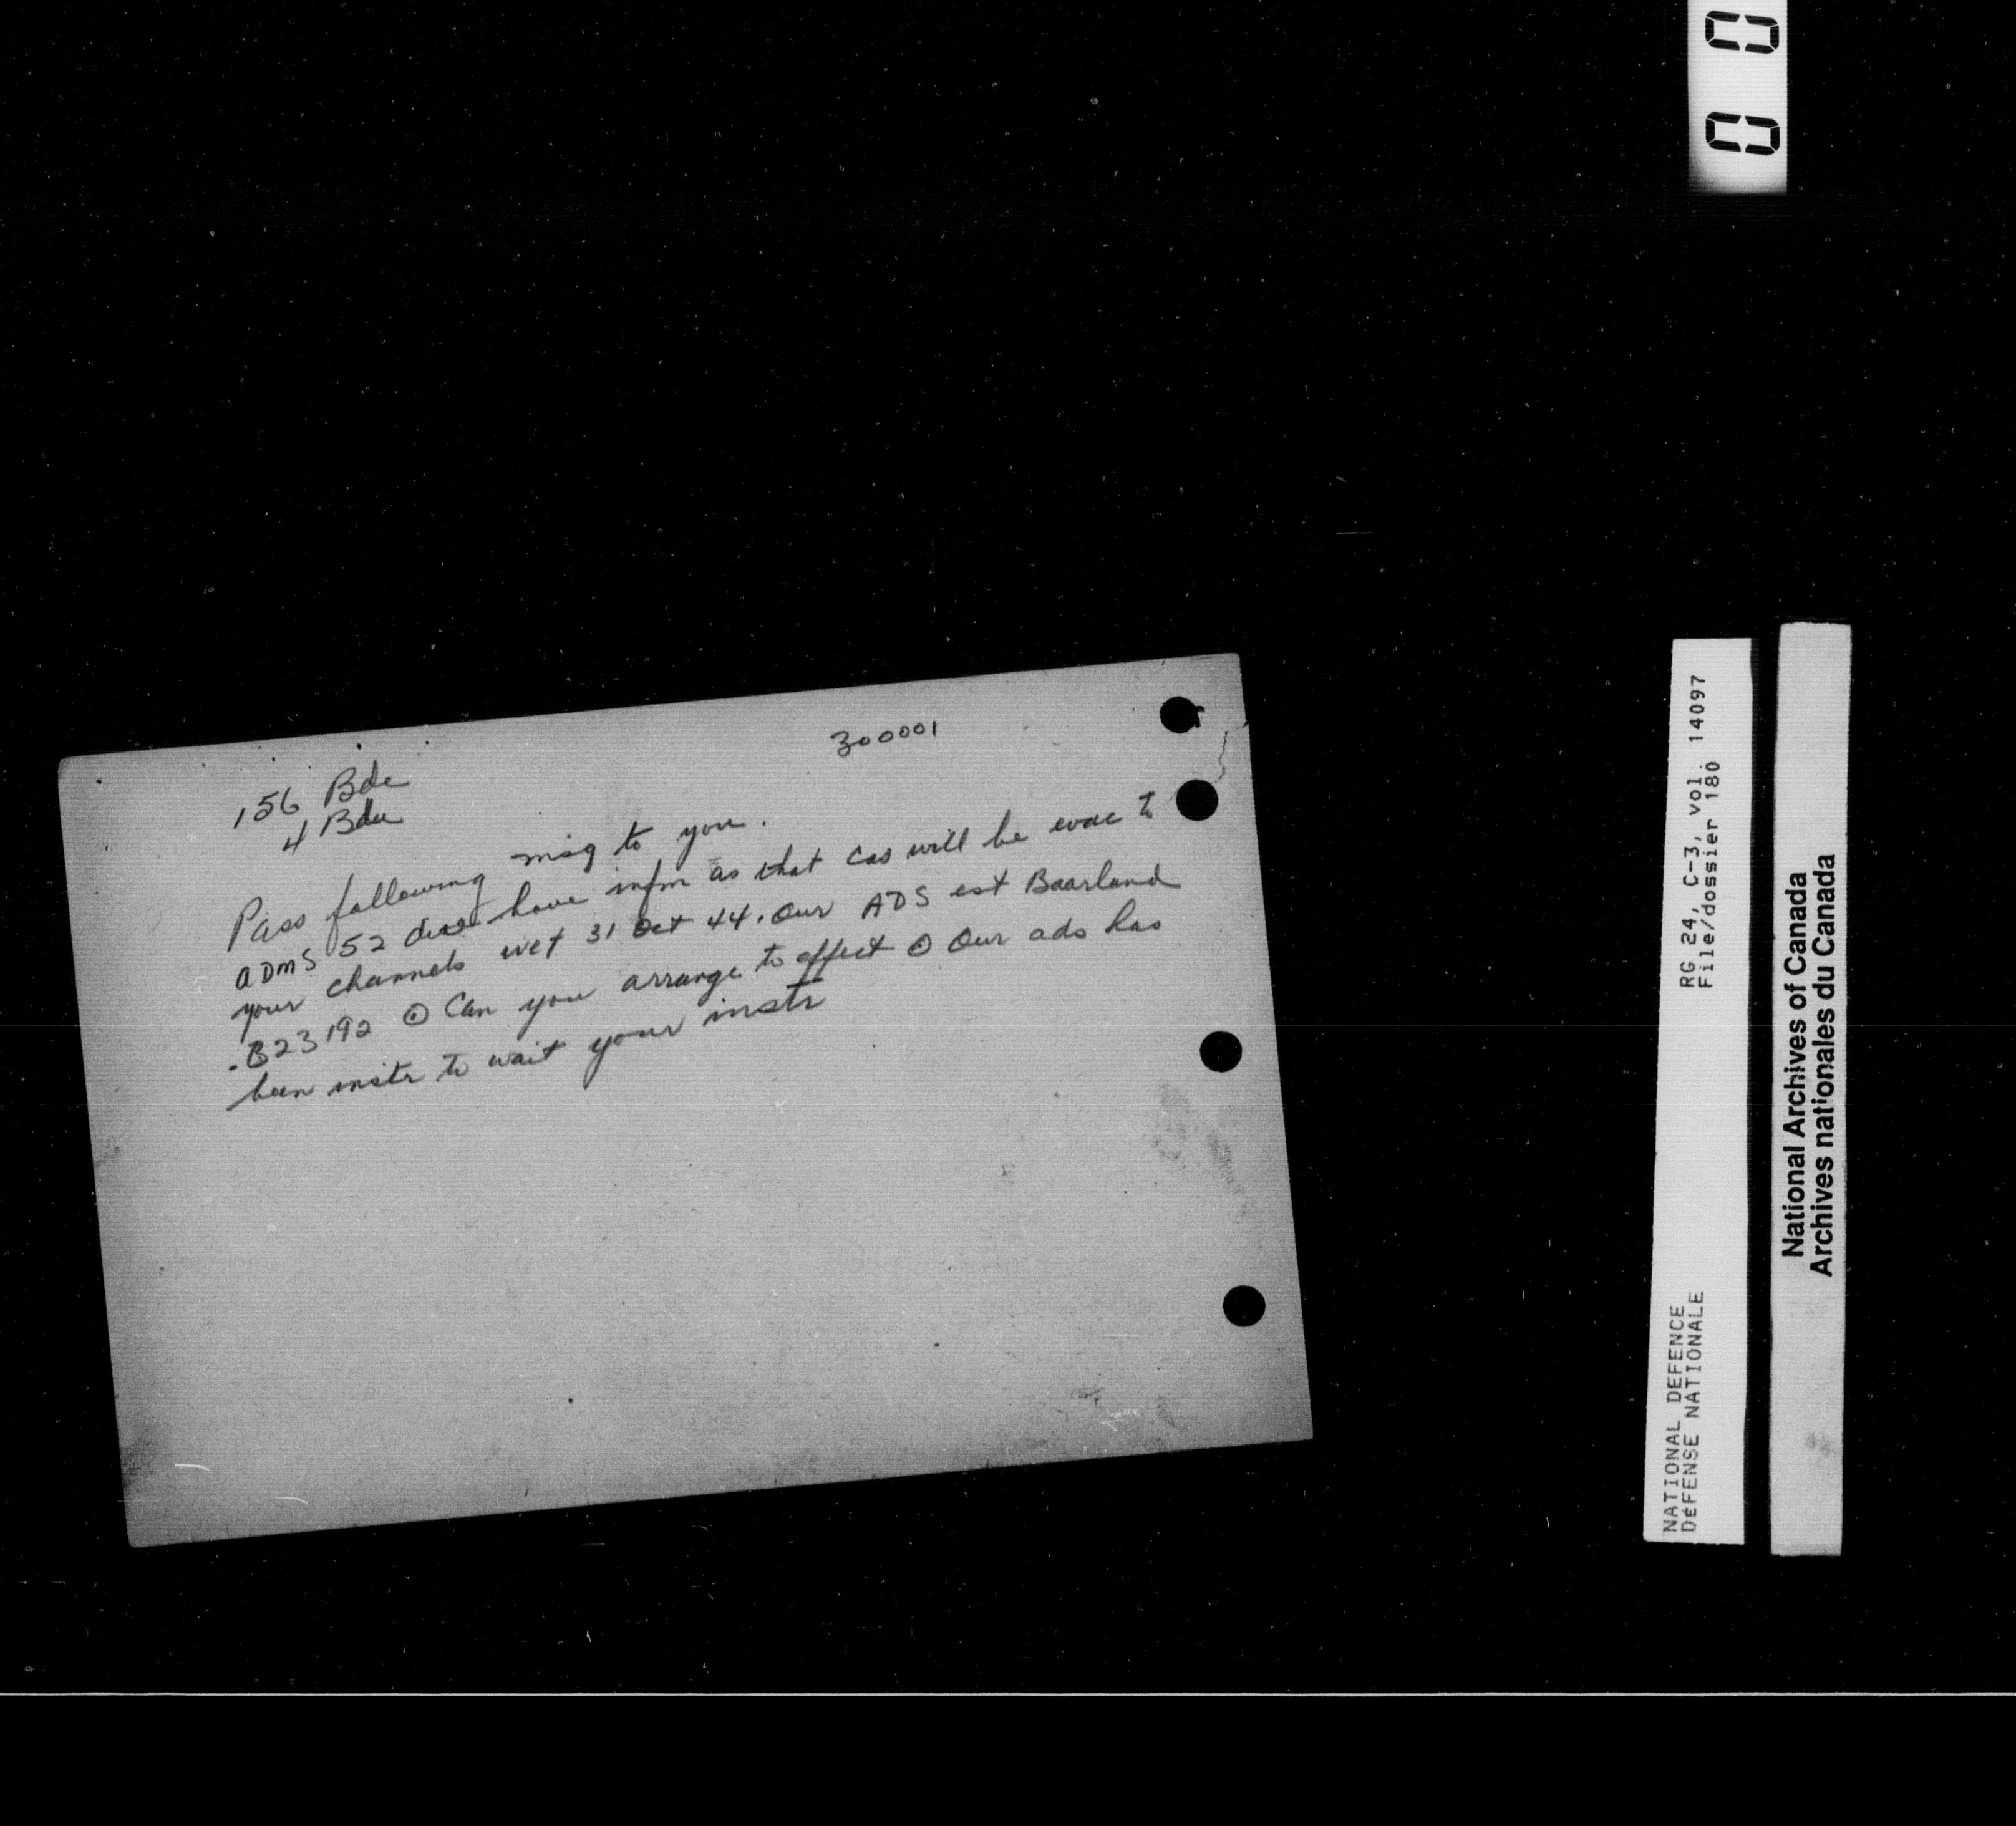 300001
156 Bde
4 Bde
Pass following msg to you.
ADMS 52 div have infm as that cas will be evac to
your channels wef 31 Oct 44. Our ADS est Baarland
-B23192 ⊙ Can you arrange to affect ⊙ Our ads has
been instr to wait your instr
0 0
RG 24, C-3, vol. 14097
File/dossier 180
NATIONAL DEFENCE
DÉFENSE NATIONALE
National Archives of Canada
Archives nationales du Canada